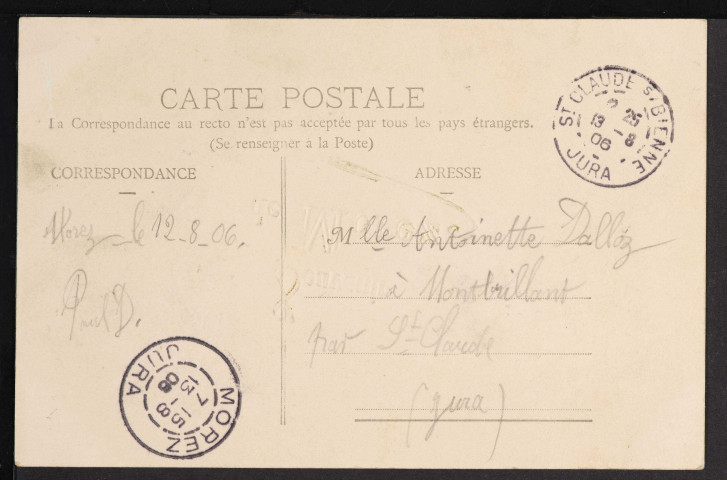 CARTE POSTALE
La Correspondance au recto n'est pas acceptée par tous les pays étrangers.
(Se renseigner à la Poste)
CORRESPONDANCE
ADRESSE
ST CLAUDE S/BIENNE
2 25
13 - 8
06
JURA
Morez le 12-8-06.
Paul D.
Mlle Antoinette Dalloz
à Montbrillant
par St Claude
(Jura)
MOREZ
7 15
13 - 8
06
JURA